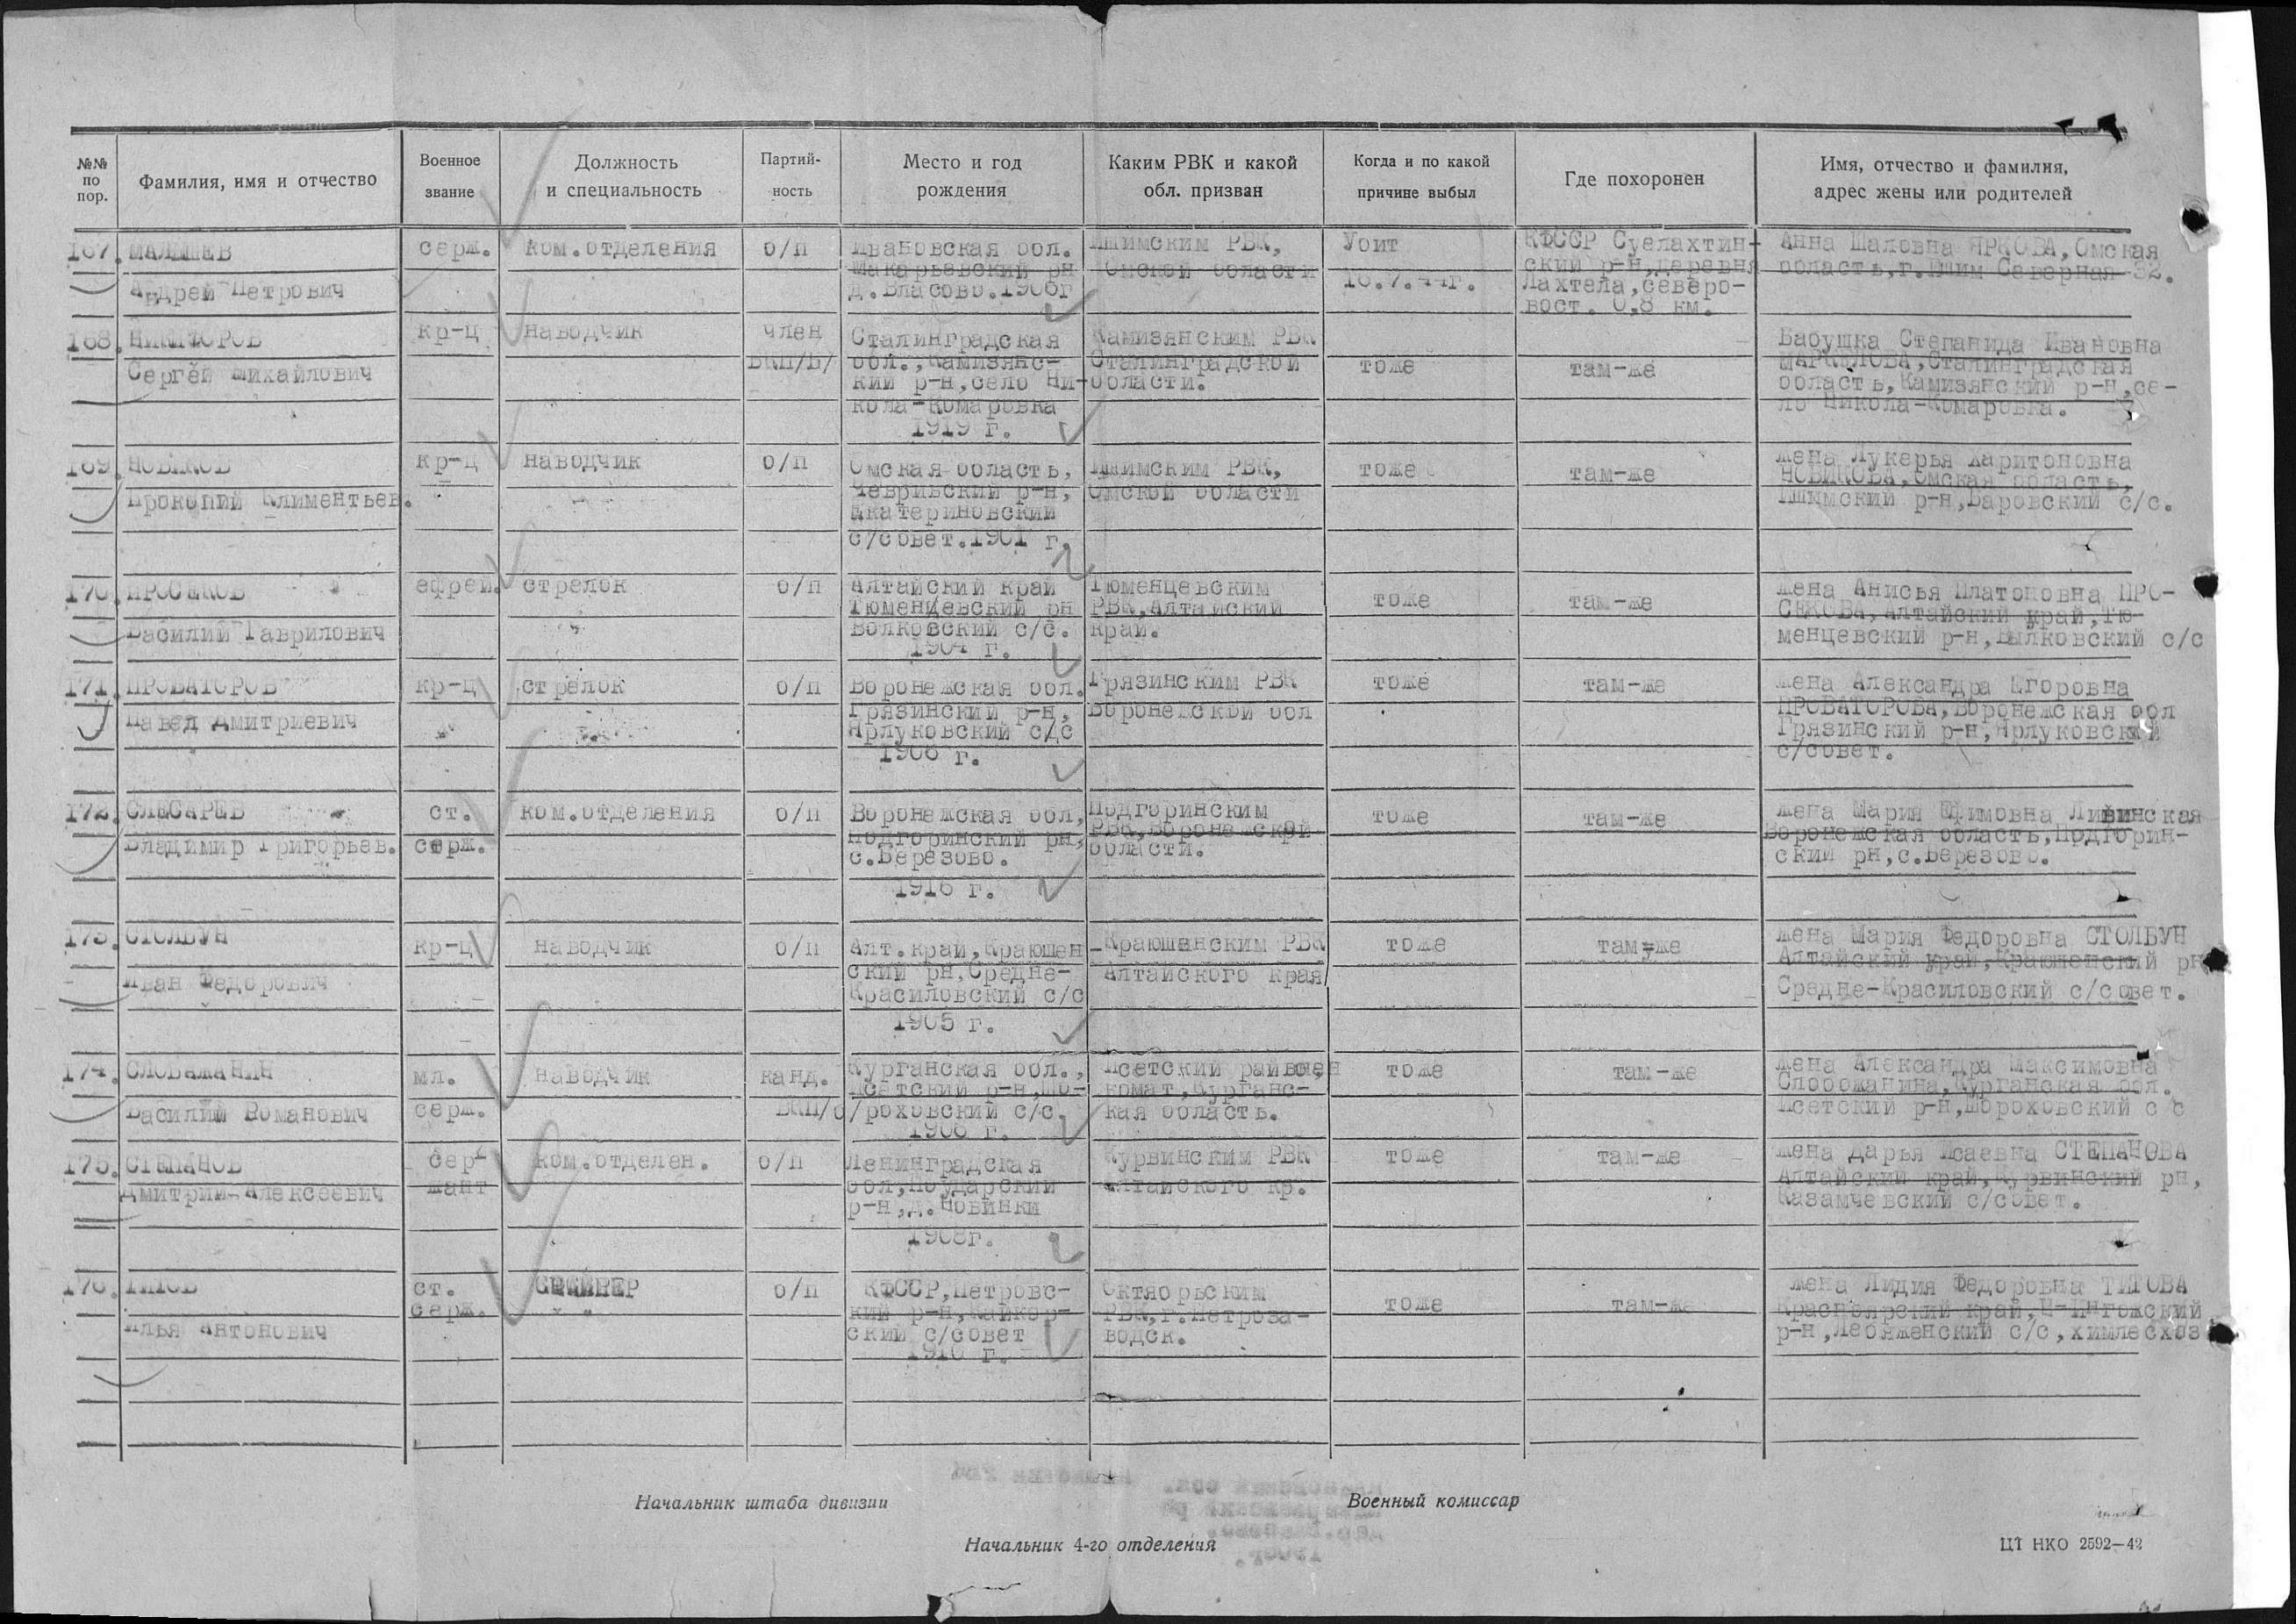 №№ по пор.
Фамилия, имя и отчество
Военное звание
Должность и специальность
Партий-ность
Место и год рождения
Каким РВК и какой обл. призван
Когда и по какой причине выбыл
Где похоронен
Имя, отчество и фамилия, адрес жены или родителей
167. МАЛЫШЕВ
Андрей Петрович
серж.
ком.отделения
о/п
Ивановская обл.
Макарьевский рн
д.Власово.1906г
Ишимским РВК,
Омской области
Убит
16.7.44г.
КФССР Суелахтин-
ский р-н,деревня
Лахтела,северо-
вост. 0,8 км.
Анна Шаловна ЯРКОВА,Омская
область,г.Ишим Северная 32.
168. НИКИФОРОВ
Сергей Михайлович
кр-ц
наводчик
член
ВКП/Б/
Сталинградская
обл.,Камизянс-
кий р-н,село Ни-
кола-Комаровка
1919 г.
Камизянским РВК
Сталинградской
области.
тоже
там-же
Бабушка Степанида Ивановна
Сталинградская
область,Камизянский р-н,се-
ло Никола-Комаровка.
169. НОВИКОВ
Прокопий Климентьев.
кр-ц
наводчик
о/п
Омская область,
р-н,
Екатериновский
с/совет.1901 г.
Ишимским РВК,
Омской области
тоже
там-же
жена Лукерья Харитоновна
НОВИКОВА,Омская область,
Ишимский р-н,Варовский с/с.
170. ПРОСЕКОВ
Василий Гаврилович
ефрей.
стрелок
о/п
Алтайский край
Тюменцевский рн
Волковский с/с.
1904 г.
Тюменцевским
РВК,Алтайский
край.
тоже
там-же
жена Анисья Платоновна ПРО-
СЕКОВА,Алтайский край,Тю-
менцевский р-н,Вылковский с/с
171. ПРОВАТОРОВ
Павел Дмитриевич
кр-ц
стрелок
о/п
Воронежская обл.
Грязинский р-н,
Ярлуковский с/с
1908 г.
Грязинским РВК
Воронежской обл
тоже
там-же
жена Александра Егоровна
ПРОВАТОРОВА,Воронежская обл
Грязинский р-н,Ярлуковский
с/совет.
172. СЛЕСАРЕВ
Владимир Григорьев.
ст.
серж.
ком.отделения
о/п
Воронежская обл,
Подгоринский рн,
с.Березово.
1916 г.
Подгоринским
РВК,Воронежской
области.
тоже
там-же
жена Мария Ефимовна
Воронежская область,Подгорин-
ский рн,с.Березово.
173. СТОЛБУН
Иван Федорович
кр-ц
наводчик
о/п
Алт.край,Краюшен
ский рн,Средне-
Красиловский с/с
1905 г.
-Краюшенским РВК
Алтайского края
тоже
там-же
жена Мария Федоровна СТОЛБУН
Алтайский край,Краюшенский рн
Средне-Красиловский с/совет.
174. СЛОБОЖАНИН
Василий Романович
мл.
серж.
наводчик
канд.
ВКП/б/
Курганская обл.,
Исетский р-н,Шо-
роховский с/с.
1906 г.
Исетский райвоен
комат,Курганс-
кая область.
тоже
там-же
жена Александра Максимовна
Слобожанина,Курганская обл.
Исетский р-н,Шороховский с с
175. СТЕПАНОВ
Дмитрий Алексеевич
сер-
жант
ком.отделен.
о/п
Ленинградская
обл,Поударский
р-н,д.Новинки
1908г.
Курвинским РВК
Алтайского кр.
тоже
там-же
жена Дарья Исаевна СТЕПАНОВА
Алтайский край,Курвинский рн,
Казамчевский с/совет.
176. ТИТОВ
Илья Антонович
ст.
серж.
о/п
КФССР,Петровс-
кий р-н,Кайкор-
ский с/совет
1910 г.
Октяорьским
РВК,г.Петроза-
водск.
тоже
там-же
жена Лидия Федоровна ТИТОВА
Красноярский край,
р-н,Лебяженский с/с,химлесхоз
Начальник штаба дивизии
Военный комиссар
Начальник 4-го отделения
ЦТ НКО 2592—42